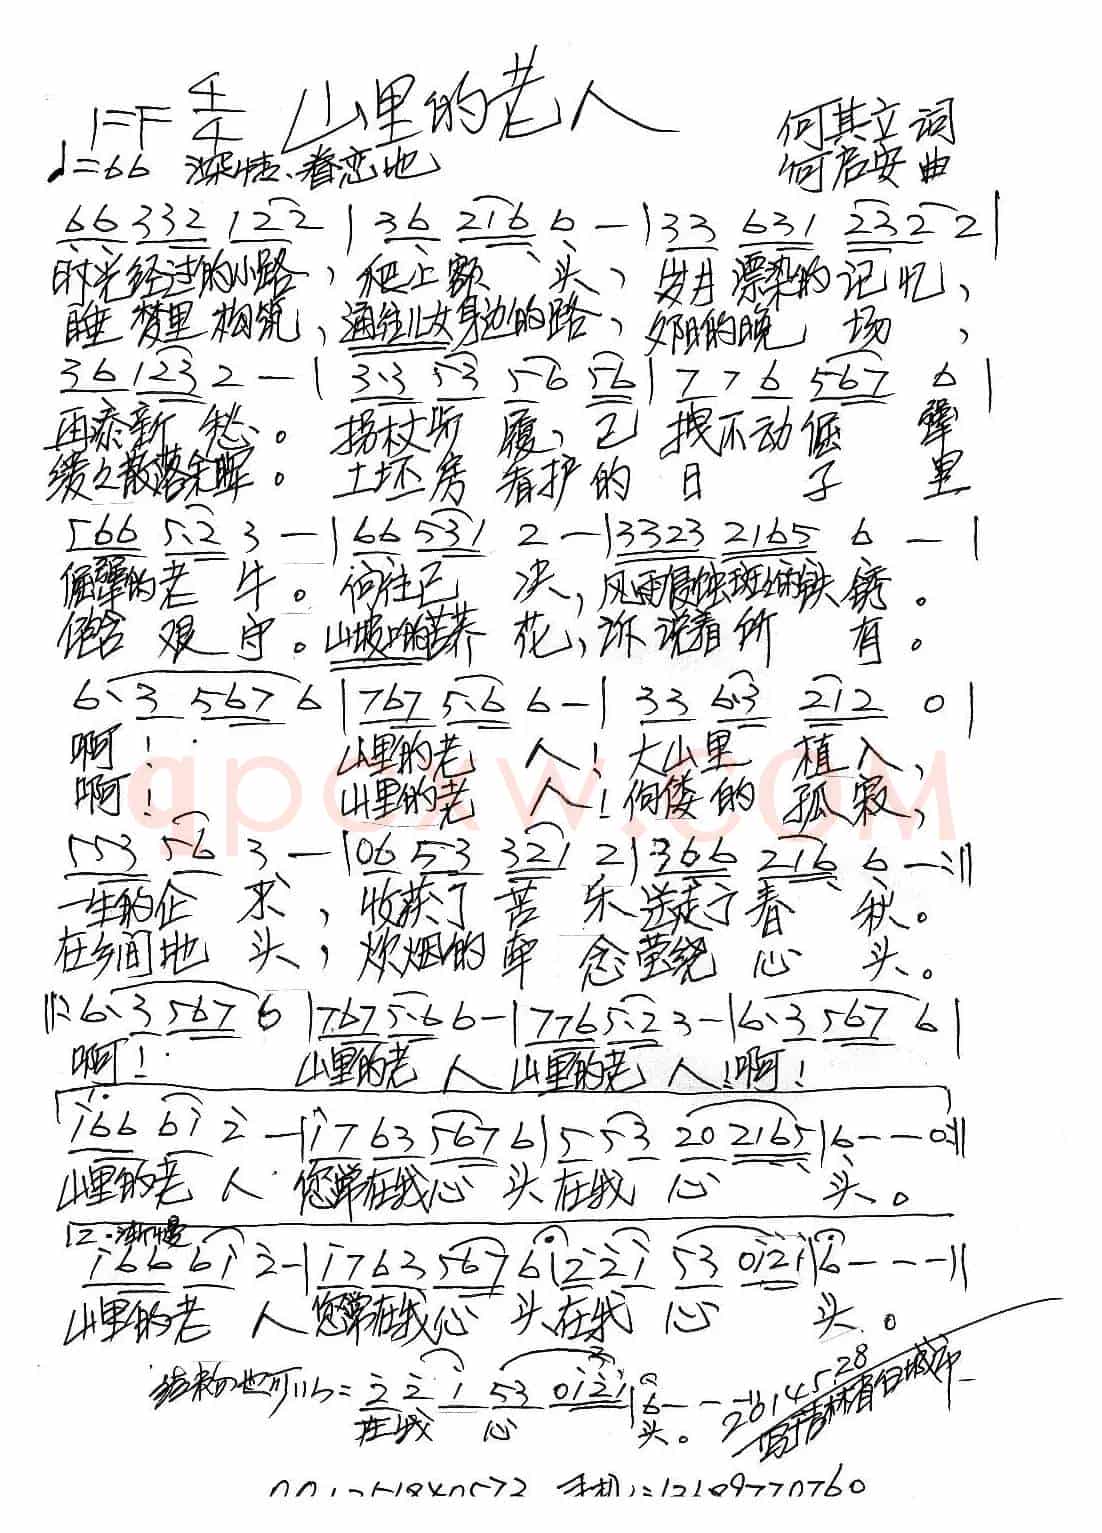 1=F 4/4 山里的老人
何其立 词
♩=66 深情、眷恋地
何启安 曲
66 332 122 | 36 216 6 - | 33 631 232 2 |
时光经过的小路, 爬上额头, 岁月漂染的记忆,
睡梦里构筑, 通往儿女身边的路, 夕阳的晚场,
36 123 2 - | 3·3 53 56 56 | 7 7 6 567 6 |
再添新愁。 拐杖所履, 已拽不动倔犟
缓缓散落余晖。 土坯房看护的日子里
566 5·2 3 - | 66 531 2 - | 3323 2165 6 - |
倔犟的老牛。 何往已决, 风雨侵蚀斑的铁锈。
饱含艰守。 山坡的苦荞花, 诉说着所有。
6·3 567 6 | 767 5·6 6 - | 33 6·3 212 0 |
啊! 山里的老人! 大山里植入,
啊! 山里的老人! 佝偻的孤寂,
553 56 3 - | 06 53 321 2 | 366 216 6 - :||
一生的企求, 收获了苦乐送走了春秋。
在乡间地头, 炊烟的牵念萦绕心头。
||: 6·3 567 6 | 767 5·6 6 - | 776 5·2 3 - | 6·3 567 6 |
啊! 山里的老人 山里的老人! 啊!
1. i66 6i 2 - | i7 63 567 6 | 5 53 20 2165 | 6 - - 0 :||
山里的老人 您常在我心头在我心头。
2. 渐慢
i66 6i 2 - | i763 567 6 | 2 2 i 53 0i2i | 6 - - - ||
山里的老人 您常在我心头在我心头。
结束句也可以是: 2 2 i 53 0i2i | 6 - - - ||
在我心头。
2014 5 28
写于吉林省白城市
qpcxw.com